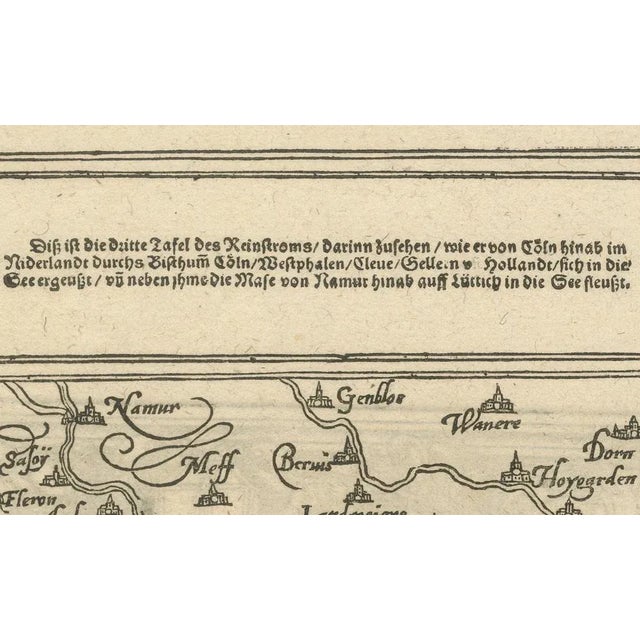 Diß ist die dritte Tafel des Reinstroms/ darinn zusehen/ wie er von Cöln hinab im
Niderlandt durchs Bisthum̄ Cöln/ Westphalen/ Cleue/ Gellern v Hollandt/ sich in die
See ergeußt/ vn̄ neben jhme die Mase von Namur hinab auff Lüttich in die See fleußt.
Namur
Genblos
Wanere
Dorn
Sasoÿ
Meff
Beruis
Hoygarden
Fleron